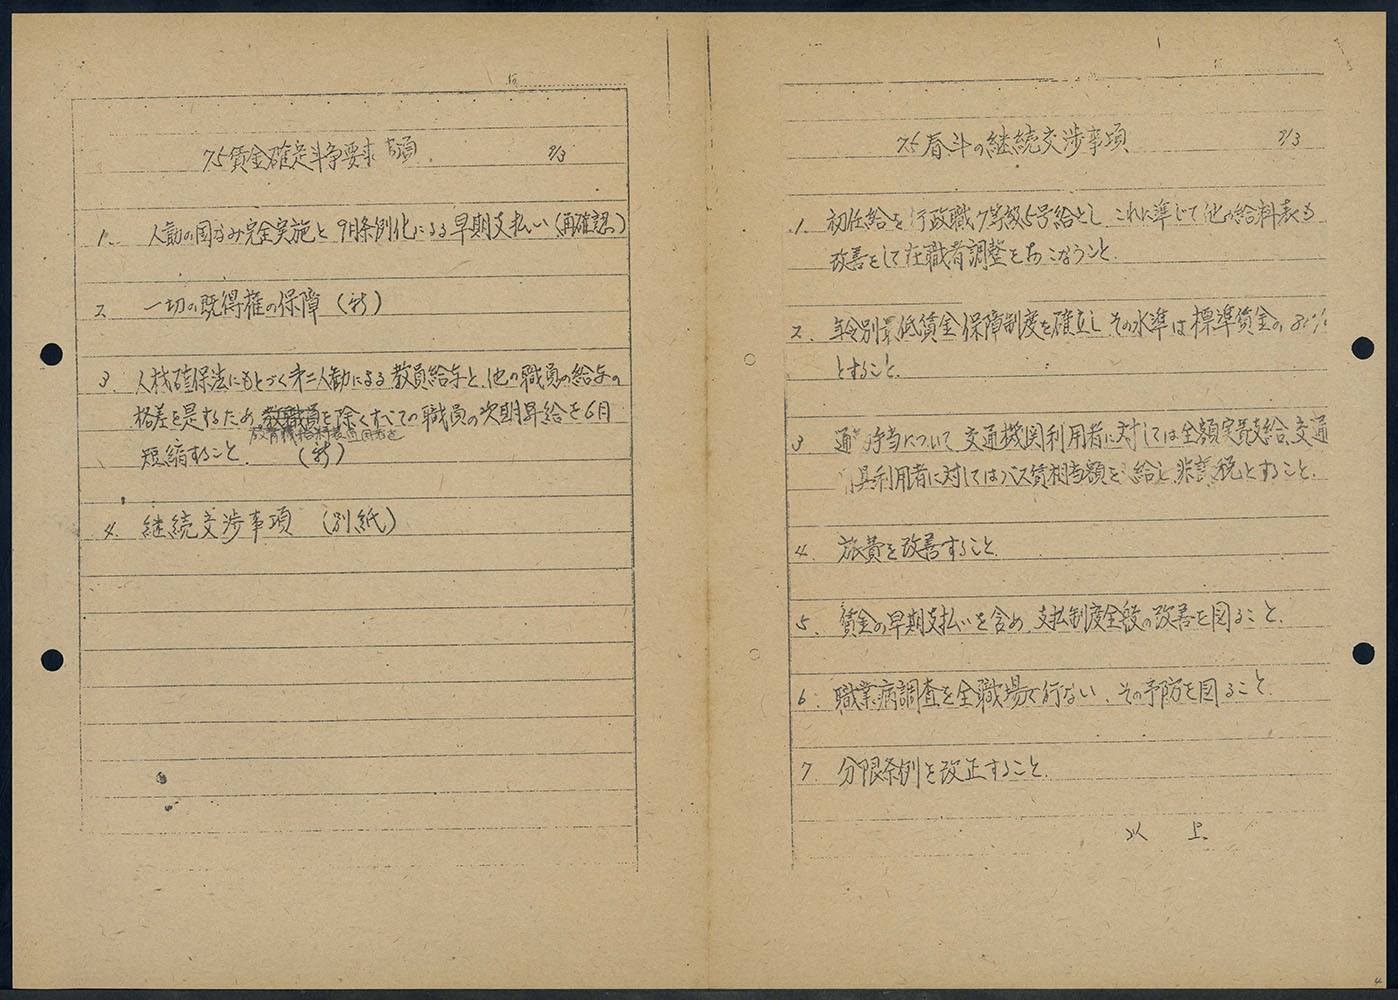 75賃金確定斗争要求事項 9/3
1. 人勧の国なみ完全実施と9月条例化による早期支払い(再確認)
2. 一切の既得権の保障(新)
3. 人材確保法にもとづく第二人勧による教員給与と、他の職員の給与の
格差を是するため、教職員を除くすべての職員の次期昇給を6月
教育職給料表適用者を
短縮すること。(新)
4. 継続交渉事項(別紙)
75春斗の継続交渉事項 9/3
1. 初任給を行政職7等級5号給とし これに準じて他の給料表も
改善をして在職者調整をおこなうこと。
2. 年令別最低賃金保障制度を確立し その水準は標準賃金の80%
とすること。
3 通勤手当について、交通機関利用者に対しては全額実費支給、交通
用具利用者に対してはバス賃相当額を支給し、非課税とすること。
4. 旅費を改善すること。
5. 賃金の早期支払いを含め、支払制度全般の改善を図ること。
6. 職業病調査を全職場で行ない、その予防を図ること。
7 分限条例を改正すること。
以上
4